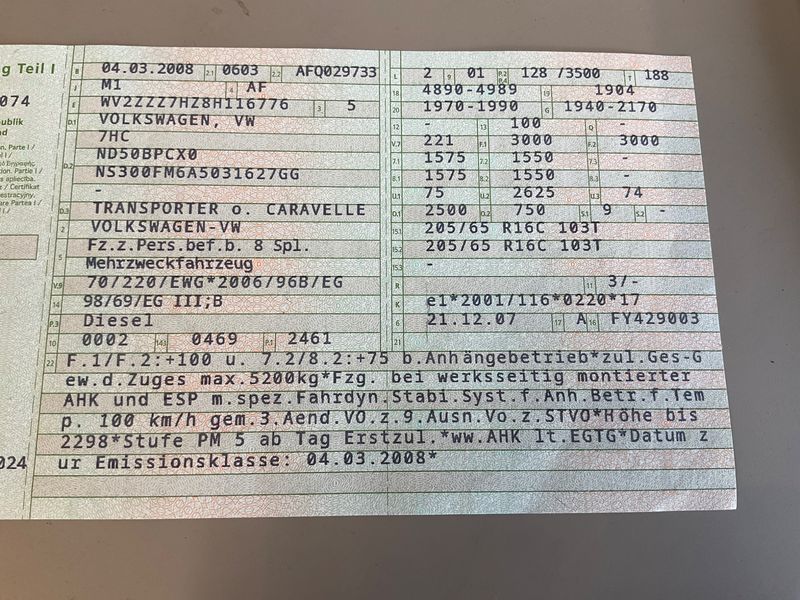 g Teil I
074
publik
nd
024
B 04.03.2008 2.1 0603 2.2 AFQ029733
J M1 4 AF
E WV2ZZZ7HZ8H116776 3 5
D.1 VOLKSWAGEN, VW
7HC
D.2 ND50BPCX0
NS300FM6A5031627GG
-
D.3 TRANSPORTER o. CARAVELLE
2 VOLKSWAGEN-VW
5 Fz.z.Pers.bef.b. 8 Spl.
Mehrzweckfahrzeug
V.9 70/220/EWG*2006/96B/EG
14 98/69/EG III;B
P.3 Diesel
10 0002 14.1 0469 P.1 2461
L 2 9 01 P.2 P.4 128 /3500 T 188
18 4890-4989 19 1904
20 1970-1990 G 1940-2170
12 - 13 100 Q -
V.7 221 F.1 3000 F.2 3000
7.1 1575 7.2 1550 7.3 -
8.1 1575 8.2 1550 8.3 -
U.1 75 U.2 2625 U.3 74
O.1 2500 O.2 750 S.1 9 S.2 -
15.1 205/65 R16C 103T
15.2 205/65 R16C 103T
15.3 -
R 11 3/-
K e1*2001/116*0220*17
6 21.12.07 17 A 16 FY429003
21
22 F.1/F.2:+100 u. 7.2/8.2:+75 b.Anhängebetrieb*zul.Ges-G
ew.d.Zuges max.5200kg*Fzg. bei werksseitig montierter
AHK und ESP m.spez.Fahrdyn.Stabi.Syst.f.Anh.Betr.f.Tem
p. 100 km/h gem.3.Aend.VO.z.9.Ausn.Vo.z.STVO*Höhe bis
2298*Stufe PM 5 ab Tag Erstzul.*ww.AHK lt.EGTG*Datum z
ur Emissionsklasse: 04.03.2008*